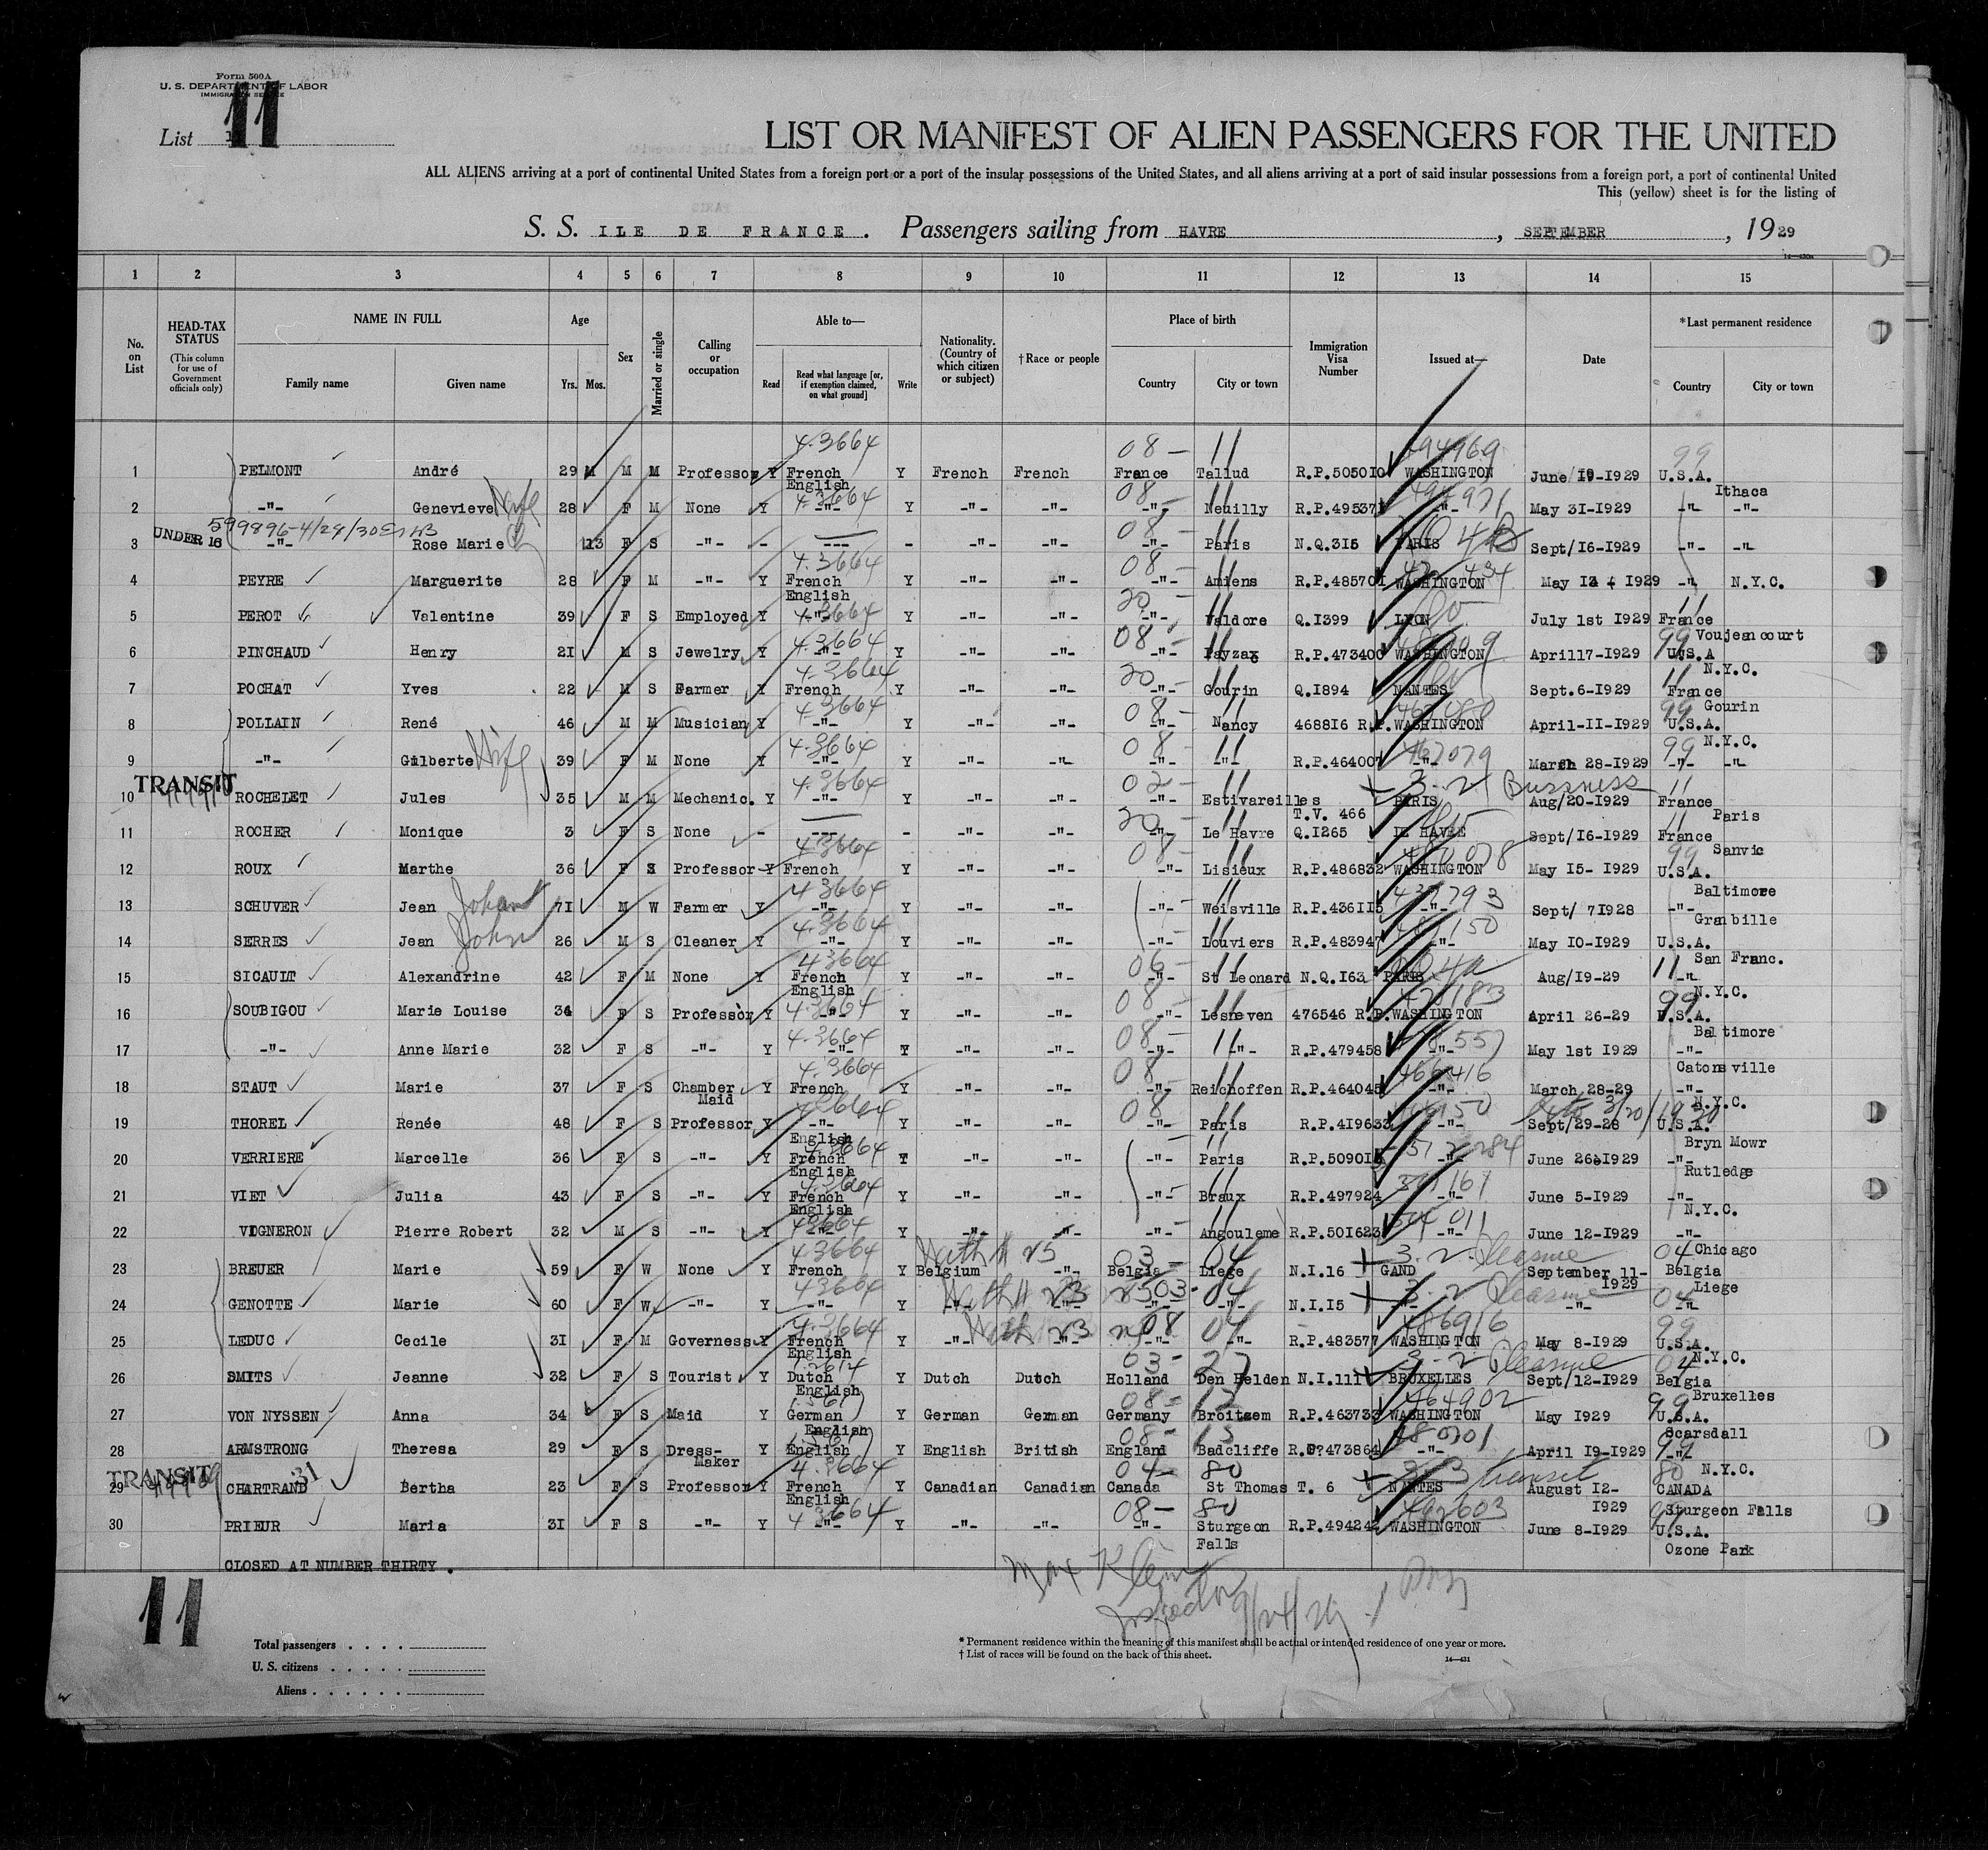 Form 500A
U. S. DEPARTMENT OF LABOR
IMMIGRATION SERVICE
List 11
LIST OR MANIFEST OF ALIEN PASSENGERS FOR THE UNITED
ALL ALIENS arriving at a port of continental United States from a foreign port or a port of the insular possessions of the United States, and all aliens arriving at a port of said insular possessions from a foreign port, a port of continental United
This (yellow) sheet is for the listing of
S. S. ILE DE FRANCE. Passengers sailing from HAVRE, SEPTEMBER, 1929
1 2 3 4 5 6 7 8 9 10 11 12 13 14 15
No. on List
HEAD-TAX STATUS (This column for use of Government officials only)
NAME IN FULL Family name Given name
Age Yrs. Mos.
Sex
Married or single
Calling or occupation
Able to— Read Read what language [or, if exemption claimed, on what ground] Write
Nationality. (Country of which citizen or subject)
†Race or people
Place of birth Country City or town
Immigration Visa Number
Issued at—
Date
*Last permanent residence Country City or town
1 PELMONT André 29 M M Professor Y French English Y French French France Tallud R.P.505010 WASHINGTON June/19-1929 U.S.A. Ithaca
2 -"- Genevieve Wife 28 F M None Y -"- Y -"- -"- -"- Neuilly R.P.495371 -"- May 31-1929 -"- -"-
UNDER 16 599896-4/29/30
3 -"- Rose Marie 13 F S -"- - --- - -"- -"- -"- Paris N.Q.315 PARIS Sept/16-1929 -"- -"-
4 PEYRE Marguerite 28 F M -"- Y French English Y -"- -"- -"- Amiens R.P.485701 WASHINGTON May 13 - 1929 -"- N.Y.C.
5 PEROT Valentine 39 F S Employed Y -"- Y -"- -"- -"- Valdore Q.1399 LYON July 1st 1929 France Voujeancourt
6 PINCHAUD Henry 21 M S Jewelry Y -"- Y -"- -"- -"- Payzac R.P.473400 WASHINGTON April17-1929 U.S.A N.Y.C.
7 POCHAT Yves 22 M S Farmer Y French Y -"- -"- -"- Gourin Q.1894 NANTES Sept.6-1929 France Gourin
8 POLLAIN René 46 M M Musician Y -"- Y -"- -"- -"- Nancy 468816 R.P. WASHINGTON April-11-1929 U.S.A. N.Y.C.
9 -"- Gilberte Wife 39 F M None Y -"- Y -"- -"- -"- -"- R.P.464007 -"- March 28-1929 -"- -"-
TRANSIT
10 ROCHELET Jules 35 M M Mechanic. Y -"- Y -"- -"- -"- Estivareilles T.V. 466 PARIS 3-2 Bussness Aug/20-1929 France Paris
11 ROCHER Monique 3 F S None - --- - -"- -"- -"- Le Havre Q.1265 LE HAVRE Sept/16-1929 France Sanvic
12 ROUX Marthe 36 F S Professor Y French Y -"- -"- -"- Lisieux R.P.486832 WASHINGTON May 15- 1929 U.S.A. Baltimore
13 SCHUVER Jean Johann 71 M W Farmer Y -"- Y -"- -"- -"- Weisville R.P.436115 -"- Sept/ 71928 -"- Granbille
14 SERRES Jean John 26 M S Cleaner Y -"- Y -"- -"- -"- Louviers R.P.483947 -"- May 10-1929 U.S.A. San Franc.
15 SICAULT Alexandrine 42 F M None Y French English Y -"- -"- -"- St Leonard N.Q.163 PARIS Aug/19-29 -"- N.Y.C.
16 SOUBIGOU Marie Louise 34 F S Professor Y -"- Y -"- -"- -"- Lesneven 476546 R.P. WASHINGTON April 26-29 U.S.A. Baltimore
17 -"- Anne Marie 32 F S -"- Y -"- Y -"- -"- -"- -"- R.P.479458 -"- May 1st 1929 -"- Catonsville
18 STAUT Marie 37 F S Chamber Maid Y French Y -"- -"- -"- Reichoffen R.P.464045 -"- March 28-29 -"- N.Y.C.
19 THOREL Renée 48 F S Professor Y -"- English Y -"- -"- -"- Paris R.P.419633 -"- Sept/29-28 U.S.A. Bryn Mowr
20 VERRIERE Marcelle 36 F S -"- Y French English Y -"- -"- -"- Paris R.P.509015 -"- June 26-1929 -"- Rutledge
21 VIET Julia 43 F S -"- Y French English Y -"- -"- -"- Braux R.P.497924 -"- June 5-1929 -"- N.Y.C.
22 VIGNERON Pierre Robert 32 M S -"- Y -"- Y -"- -"- -"- Angouleme R.P.501623 -"- June 12-1929 -"- Chicago
23 BREUER Marie 59 F W None Y French Y Belgium -"- Belgia Liege N.I.16 GAND 3-2 Pleasure September 11-1929 Belgia Liege
24 GENOTTE Marie 60 F W -"- Y -"- Y -"- -"- -"- -"- N.I.15 -"- 3-2 Pleasure -"- -"-
25 LEDUC Cecile 31 F M Governess Y French English Y -"- -"- -"- -"- R.P.483577 WASHINGTON May 8-1929 U.S.A. N.Y.C.
26 SMITS Jeanne 32 F S Tourist Y Dutch English Y Dutch Dutch Holland Den Helden N.I.111 BRUXELLES 3-2 Pleasure Sept/12-1929 Belgia Bruxelles
27 VON NYSSEN Anna 34 F S Maid Y German English Y German German Germany Broitzem R.P.463733 WASHINGTON May 1929 U.S.A. Scarsdall
28 ARMSTRONG Theresa 29 F S Dress-Maker Y English Y English British England Badcliffe R.P.473864 -"- April 19-1929 -"- N.Y.C.
TRANSIT
29 CHARTRAND 31 Bertha 23 F S Professor Y French English Y Canadian Canadian Canada St Thomas T. 6 NANTES transit August 12-1929 CANADA Sturgeon Falls
30 PRIEUR Maria 31 F S -"- Y -"- Y -"- -"- -"- Sturgeon Falls R.P.494242 WASHINGTON June 8-1929 U.S.A. Ozone Park
CLOSED AT NUMBER THIRTY.
Max Klein
Inspector 9/24/29
11
Total passengers
U. S. citizens
Aliens
* Permanent residence within the meaning of this manifest shall be actual or intended residence of one year or more.
† List of races will be found on the back of this sheet.
14—431